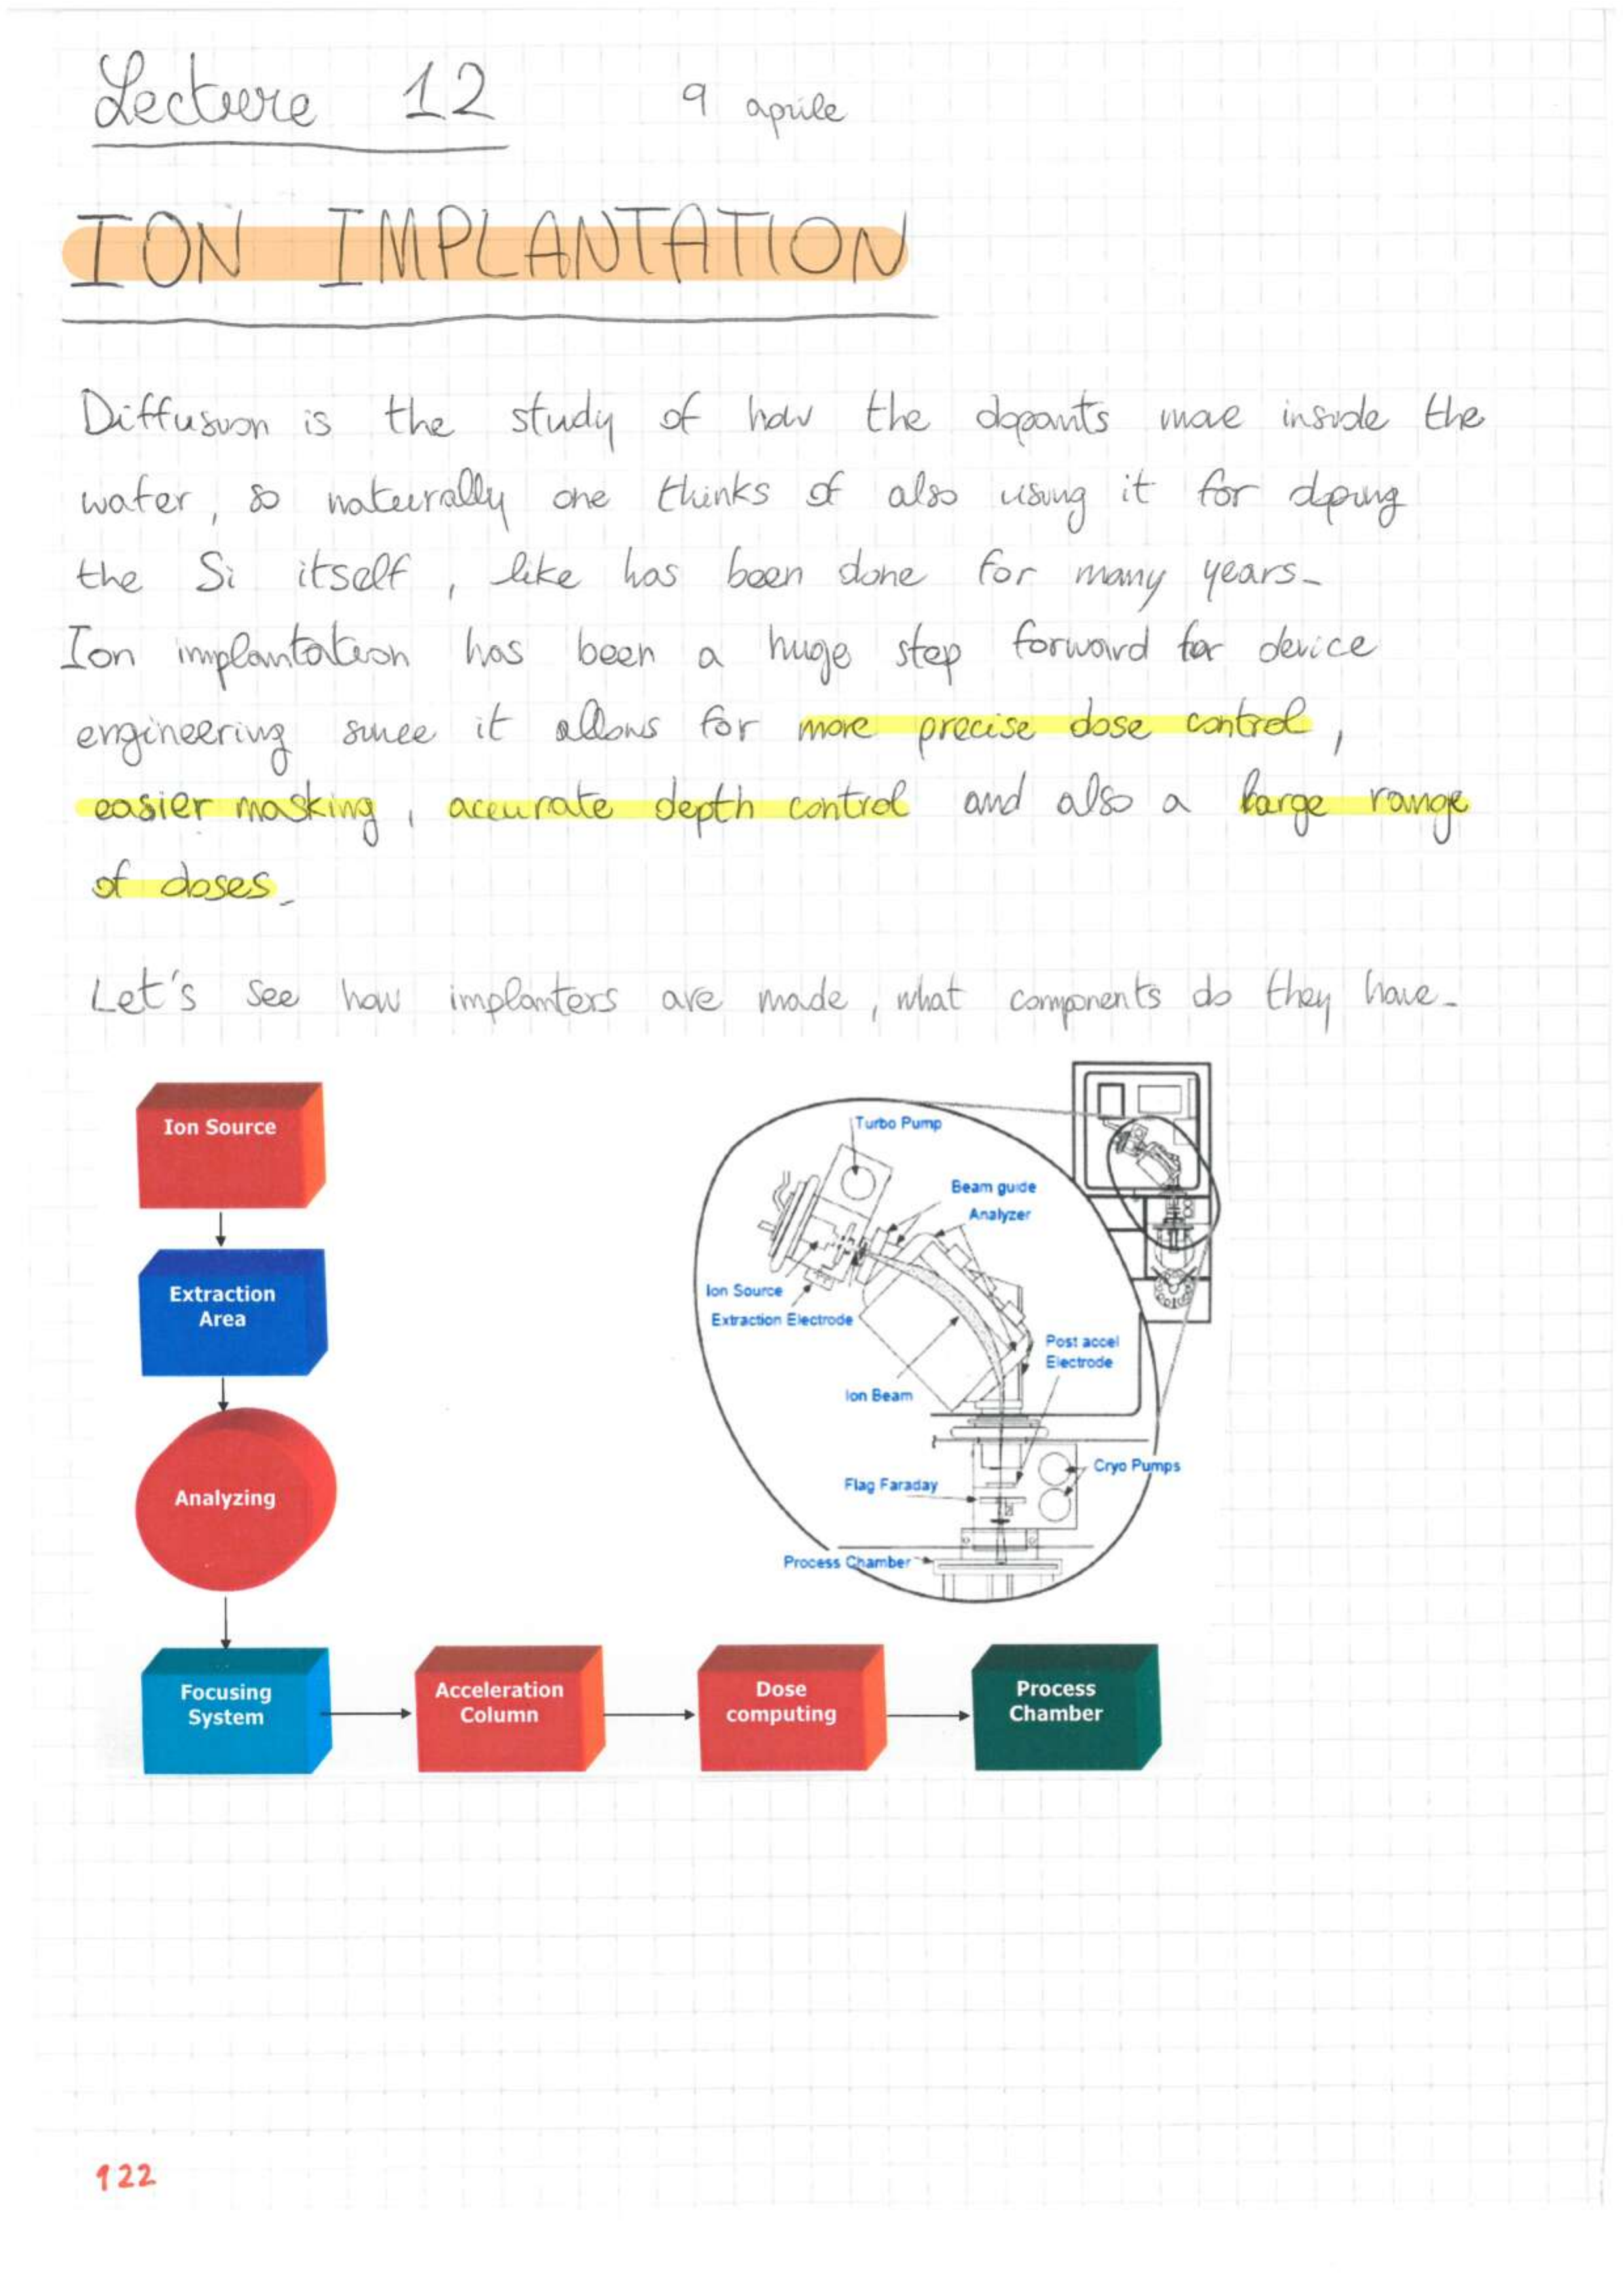 Lecture 12 9 aprile
ION IMPLANTATION
Diffusion is the study of how the dopants move inside the
wafer, so naturally one thinks of also using it for doping
the Si itself, like has been done for many years.
Ion implantation has been a huge step forward for device
engineering since it allows for more precise dose control,
easier masking, accurate depth control and also a large range
of doses.
Let's see how implanters are made, what components do they have.
Ion Source
Extraction
Area
Analyzing
Focusing
System
Acceleration
Column
Dose
computing
Process
Chamber
Turbo Pump
Beam guide
Analyzer
Ion Source
Extraction Electrode
Post accel
Electrode
Ion Beam
Cryo Pumps
Flag Faraday
Process Chamber
122